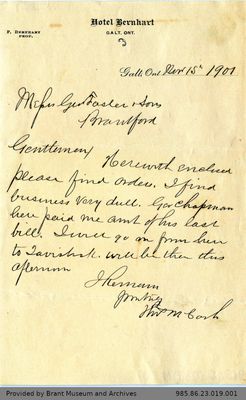 Hotel Bernhart
F. BERNHART
PROP.
GALT, ONT.
3
Galt, Ont Nov 15th 1901
Messrs Geo Foster & Sons
Brantford
Gentlemen
Herewith enclosed
please find orders. I find
business very dull. Geo Chapman
here paid me amt of his last
bill. I will go on from here
to Tavistock will be there this
afternoon
I Remain
Yours truly
McCosh
Provided by Brant Museum and Archives
985.86.23.019.001